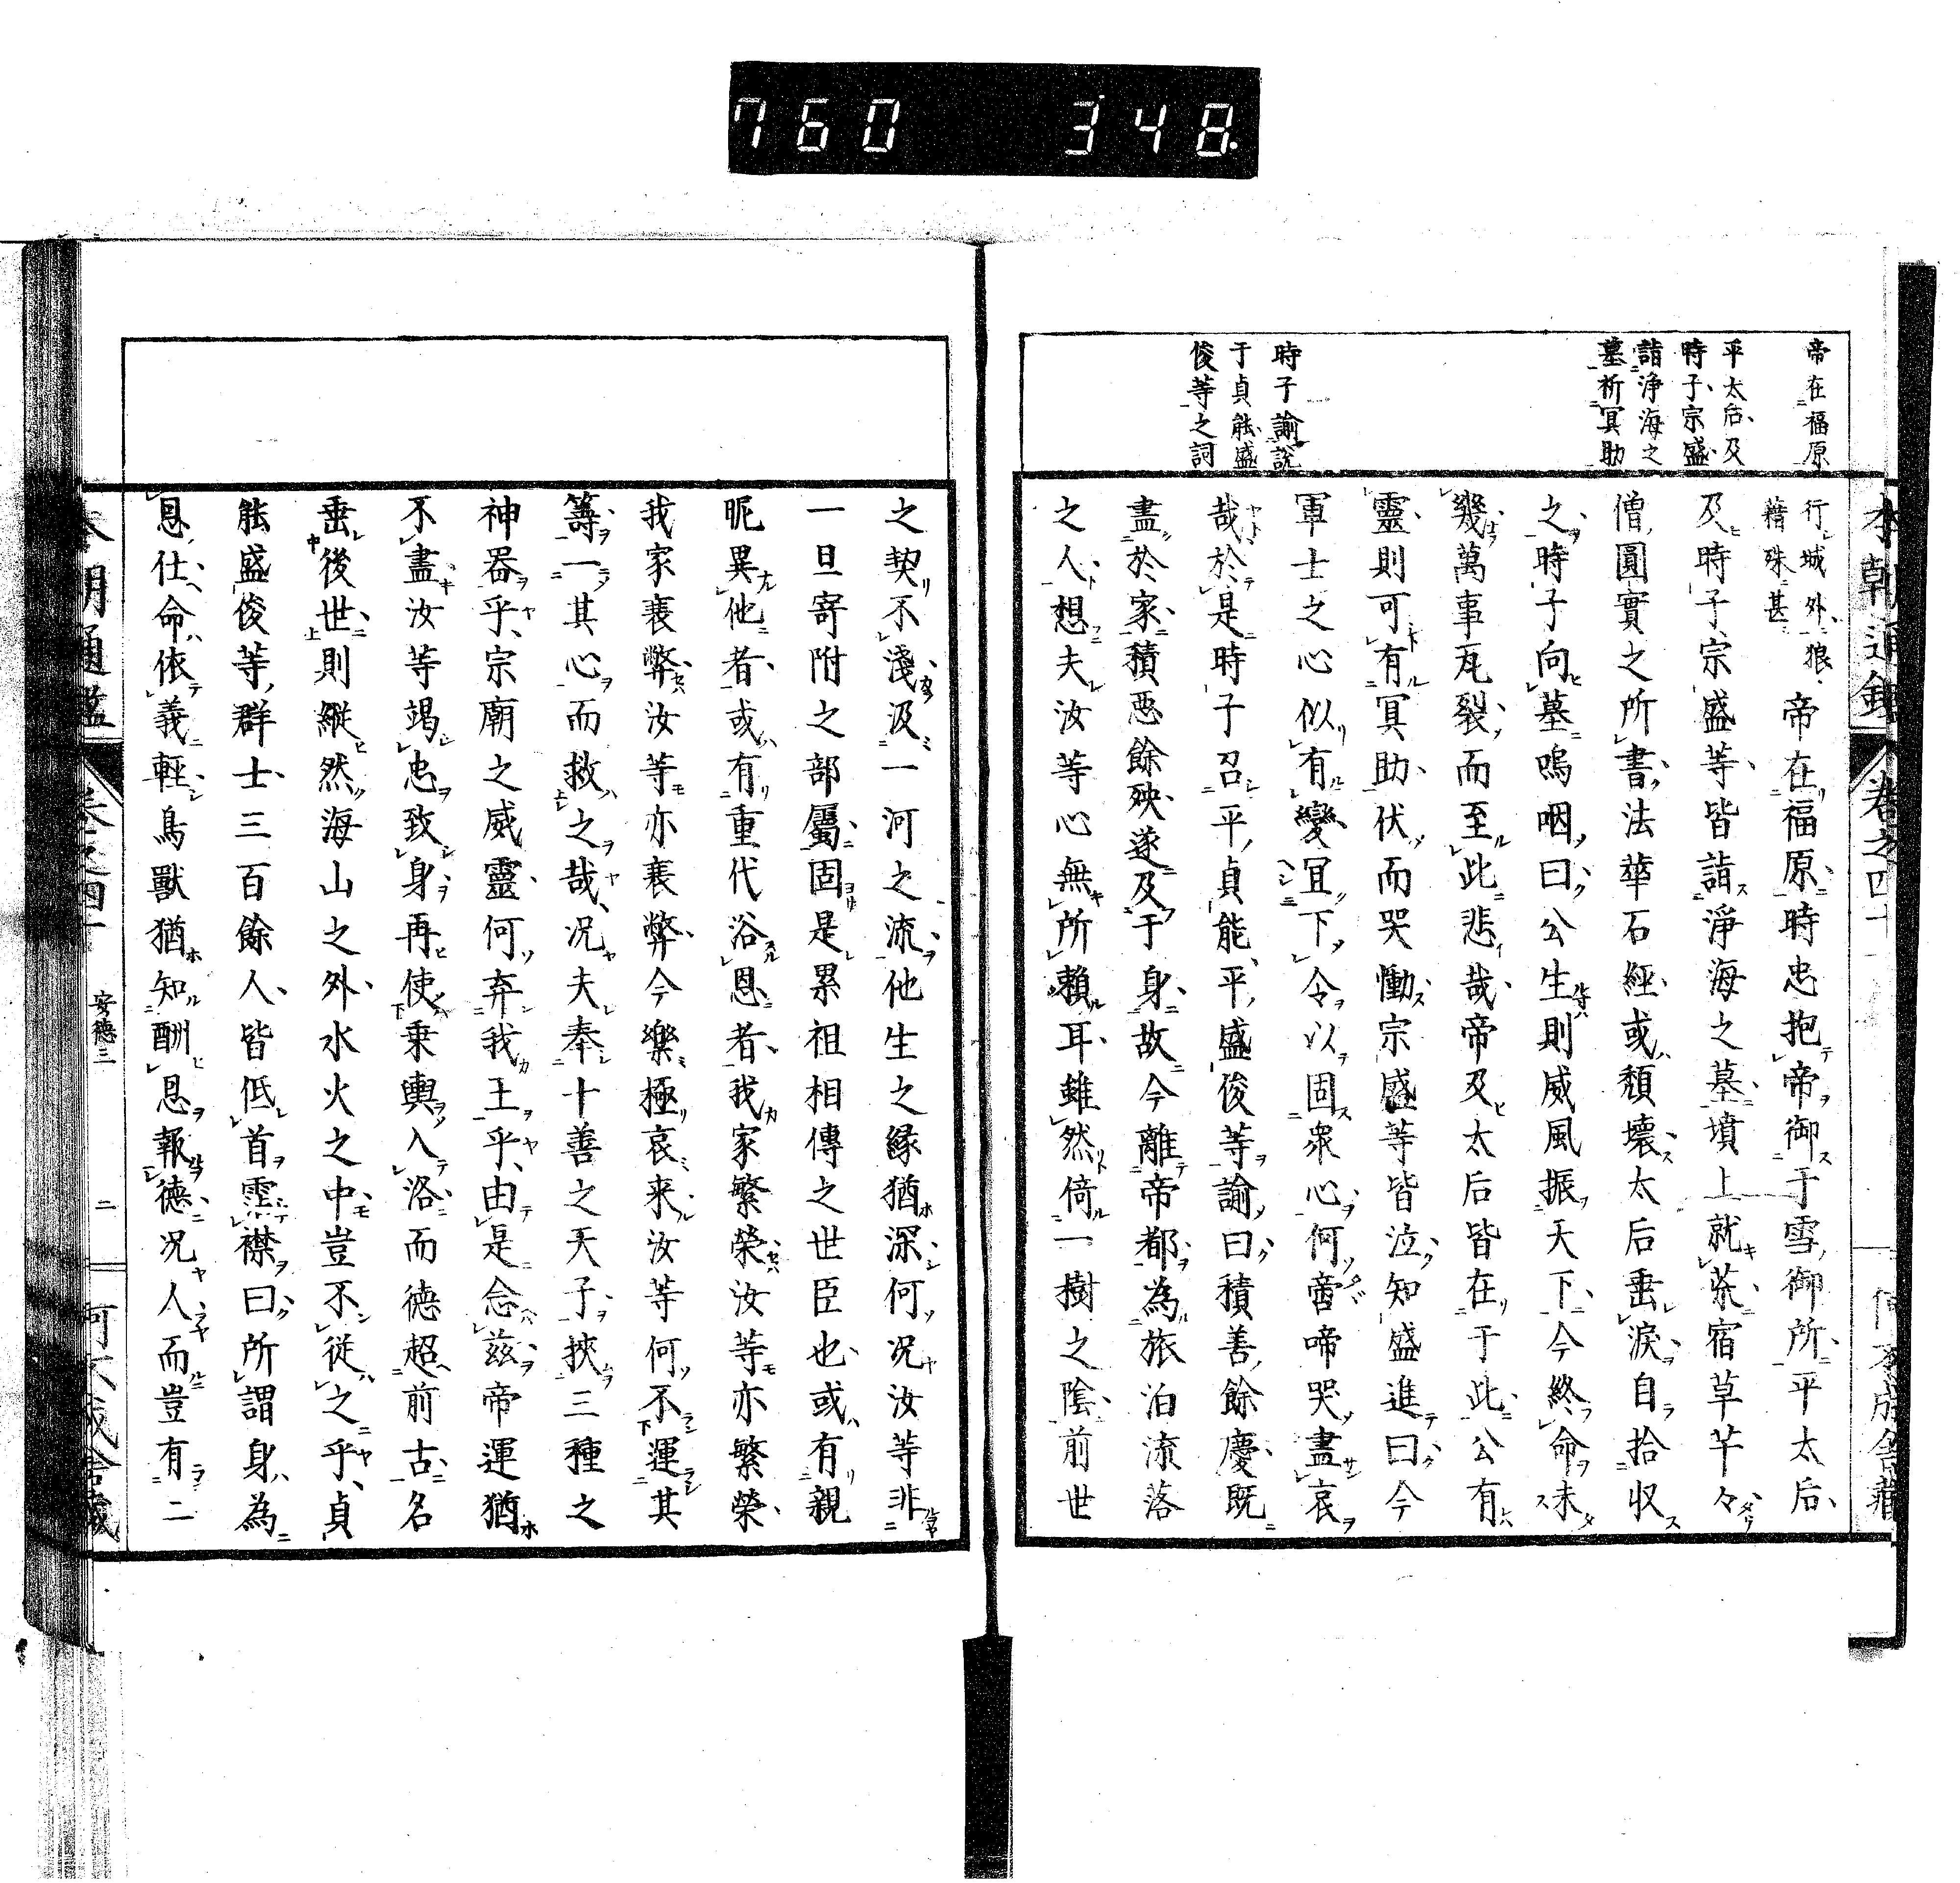 760 348.
本朝通鑑 卷之四十 何不成舎蔵
帝在福原
平太后及
時子宗盛
詣淨海之
墓祈冥助
時子諭說
于貞能盛
俊等之詞
行城外狼
藉殊甚
帝在福原時忠抱帝御于雪御所平太后
及時子宗盛等皆詣淨海之墓墳上就荒宿草芊々
僧圓實之所書法華石經或頹壞太后垂淚自拾収
之時子向墓嗚咽曰公生則威風振天下今終命未
幾萬事瓦裂而至此悲哉帝及太后皆在于此公有
靈則可有冥助伏而哭慟宗盛等皆泣知盛進曰今
軍士之心似有變宜下令以固衆心何啻啼哭盡哀
哉於是時子召平貞能平盛俊等諭曰積善餘慶既
盡於家積惡餘殃遂及于身故今離帝都為旅泊流落
之人想夫汝等心無所賴耳雖然倚一樹之陰前世
之契不淺汲一河之流他生之緣猶深何況汝等非
一旦寄附之部屬固是累祖相傳之世臣也或有親
昵異他者或有重代浴恩者我家繁榮汝等亦繁榮
我家衰弊汝等亦衰弊今樂極哀来汝等何不運其
籌一其心而救之哉况夫奉十善之天子挾三種之
神器乎宗廟之威靈何弃我王乎由是念茲帝運猶
不盡汝等竭忠致身再使乗輿入洛而德超前古名
垂後世則縱然海山之外水火之中豈不從之乎貞
能盛俊等群士三百餘人皆低首霑襟曰所謂身為
恩仕命依義輕鳥獸猶知酬恩報德况人而豈有二
本朝通鑑 卷之四十 安德三 二 何不成舎蔵